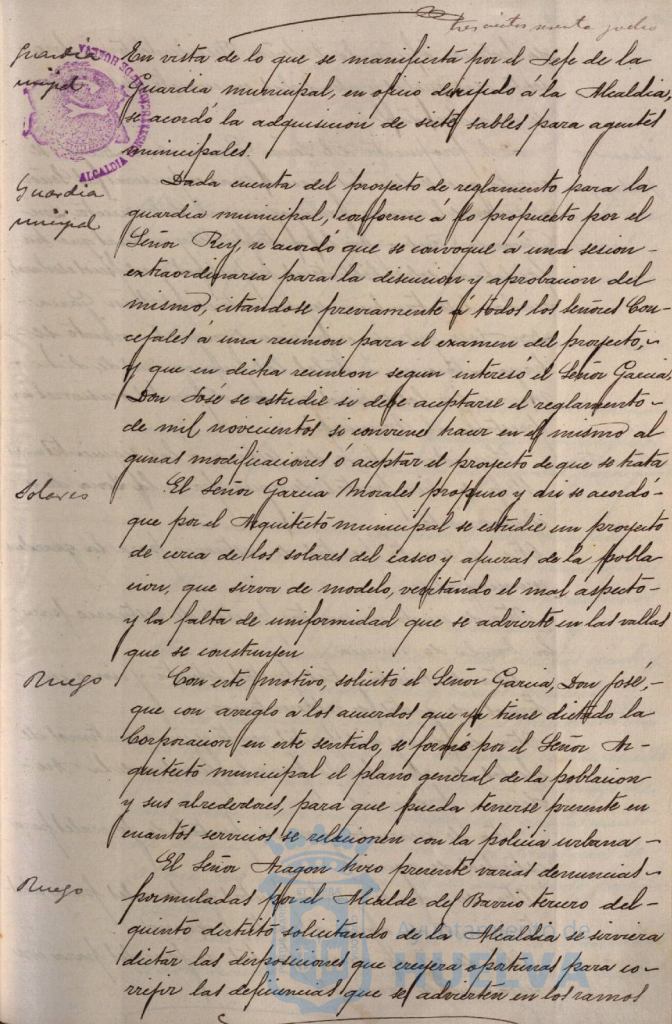 trescientos
Guardia
En vista de lo que se manifiesta por el Jefe de la
Guardia municipal, en oficio dirijido á la Alcaldia,
se acordó la adquisicion de siete sables para agentes
municipales.
ALCALDIA
Guardia
Dada cuenta del proyecto de reglamento para la
guardia municipal, conforme á lo propuesto por el
Señor Rey, se acordó que se convoque á una sesion
extraordinaria para la discusion y aprobacion del
mismo, citandose previamente á todos los señores Con-
cejales á una reunion para el examen del proyecto,
y que en dicha reunion segun interesó el Señor Garcia,
Don José se estudie si debe aceptarse el reglamento
de mil novecientos si conviene hacer en el mismo al
gunas modificaciones ó aceptar el proyecto de que se trata
Solares
El Señor Garcia Morales propuso y asi se acordó
que por el Arquitecto municipal se estudie un proyecto
de cerca de los solares del casco y afueras de la pobla
cion, que sirva de modelo, evitando el mal aspecto
y la falta de uniformidad que se advierte en las vallas
que se construyen
Ruego
Con este motivo, solicitó el Señor Garcia, Don José,
que con arreglo á los acuerdos que ya tiene dictado la
Corporacion en este sentido, se forme por el Señor Ar-
quitecto municipal el plano general de la poblacion
y sus alrededores, para que pueda tenerse presente en
cuantos servicios se relacionen con la policia urbana
Ruego
El Señor Aragon hizo presente varias denuncias
formuladas por el Alcalde del Barrio tercero del
quinto distrito solicitando de la Alcaldia se sirviera
dictar las disposiciones que creyera oportunas para co-
rrejir las deficiencias que se advierten en los ramos
Ayuntamiento de
HUELVA